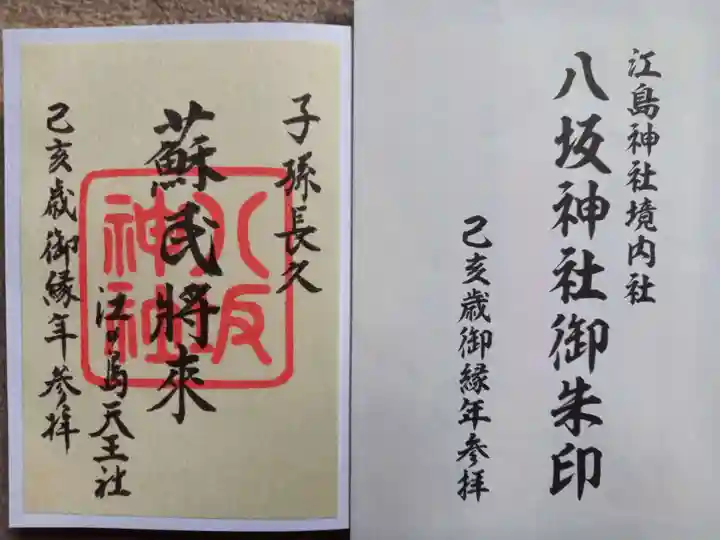 江島神社境内社
八坂神社御朱印
己亥歳御縁年参拝
子孫長久
蘇民將來
江ノ島天王社
己亥歳御縁年参拝
八坂
神社